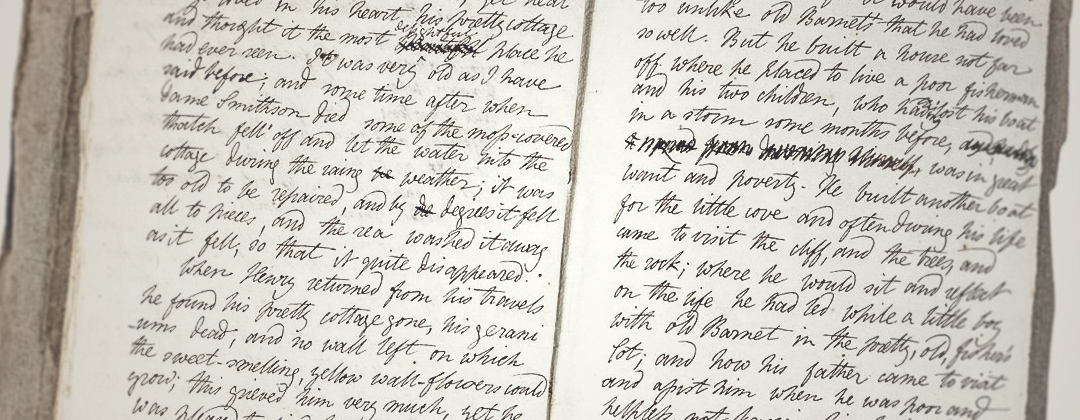 loved in his heart, his pretty cottage
and thought it the most delightful place he
had ever seen. It was very old as I have
said before; and some time after when
Dame Smithson died some of the moss-covered
thatch fell off and let the water into the
cottage during the rainy weather; it was
too old to be repaired, and by degrees it fell
all to pieces, and the sea washed it away
as it fell, so that it quite disappeared.
When Henry returned from his travels
he found his pretty cottage gone, his gerani
-ums dead, and no wall left, on which
the sweet-smelling, yellow wall-flowers could
grow; this grieved him very much, yet he
was pleased
too unlike old Barnet's that he had loved
so well. But he built a house not far
off where he placed to live a poor fisherman
and his two children, who had lost his boat
in a storm some months before,
was in great
want and poverty. He built another boat
for the little cove and often during his life
came to visit the cliff, and the trees, and
the rock; where he would sit and reflect
on the life he had led while a little boy
with old Barnet in the pretty, old, fisher's
Cot; and how his father came to visit
and assist him when he was poor and
helpless, not